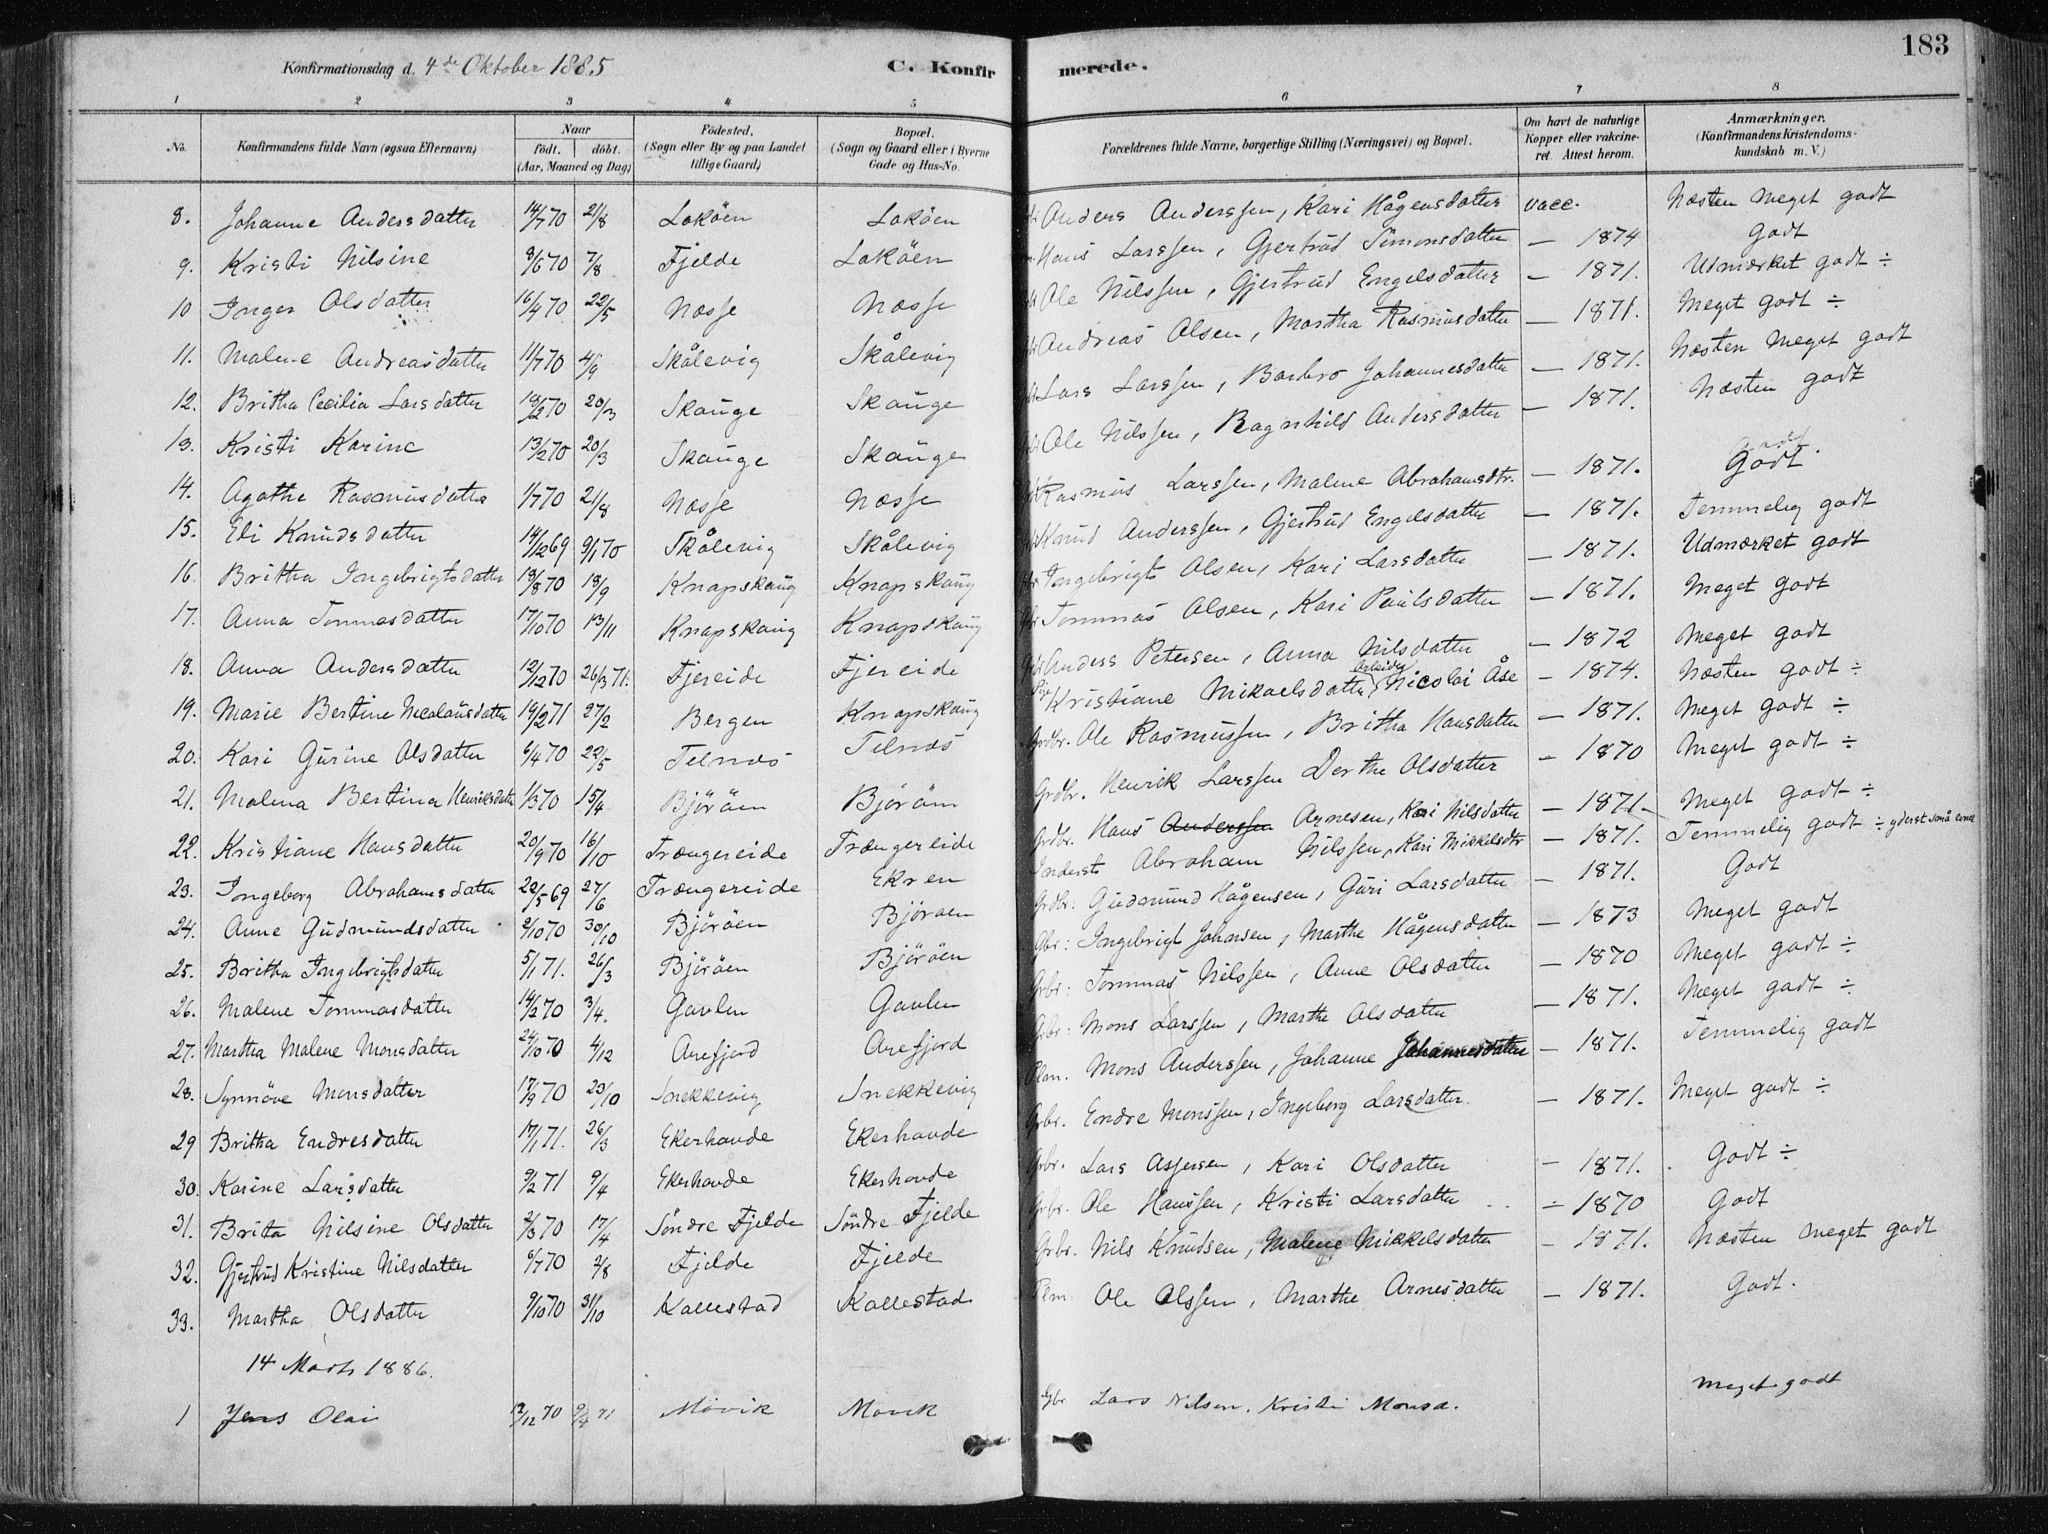 Konfirmationsdag d. 4de Oktober 1885 C. Konfirmerede. 183
1 2 3 4 5 6 7 8
No. Konfirmandens fulde Navn (ogsaa Efternavn) Naar födt. döbt. (Aar, Maaned og Dag) Födested. (Sogn eller By og paa Landet tillige Gaard) Bopæl. (Sogn og Gaard eller i Byerne Gade og Hus-No. Forældrenes fulde Navne, borgerlige Stilling (Næringsvei) og Bopæl. Om havt de naturlige Kopper eller vakcineret. Attest herom. Anmærkninger. (Konfirmandens Kristendomskundskab m. V.)
8. Johanne Andersdatter 14/7 70 21/8 Lokøen Lokøen Anders Anderssen, Kari Hågensdatter vacc. Næsten meget godt
9. Kristi Nilsine 8/6 70 7/8 Fjelde Lokøen Hans Larssen, Gjertrud Simonsdatter — 1874 Godt
10 Inger Olsdatter 16/4 70 22/5 Næsse Næsse Ole Nilssen, Gjertrud Engelsdatter — 1871. Udmærket godt ÷
11. Malene Andreasdatter 11/7 70 4/9 Skålevig Skålevig Andreas Olsen, Martha Rasmusdatter — 1871. Meget godt ÷
12. Britha Cecilia Larsdatter 18/2 70 20/3 Skouge Skouge Lars Larssen, Barbro Johannesdatter — 1871. Næsten meget godt
13. Kristi Karine 13/2 70 20/3 Skouge Skouge Ole Nilssen, Ragnhild Andersdatter — 1871. Næsten godt
14. Agathe Rasmusdatter 1/7 70 21/8 Næsse Næsse Rasmus Larssen, Malene Abrahamsdtr. — 1871. Godt
15. Eli Knudsdatter 14/12 69 9/1 70 Skålevig Skålevig Knud Anderssen, Gjertrud Engelsdatter — 1871. Temmelig godt
16. Britha Ingebrigtsdatter 13/8 70 18/9 Knapskoug Knapskoug Ingebrigt Olsen, Kari Larsdatter — 1871. Udmærket godt
17. Anna Tommasdatter 17/10 70 13/11 Knapskoug Knapskoug Tommas Olsen, Kari Paulsdatter — 1871. Meget godt
18. Anna Andersdatter 12/12 70 26/3 71. Fjereide Fjereide Anders Petersen, Anna Nilsdatter — 1872 Meget godt
19. Marie Bertine Nicolausdatter 19/2 71 27/2 Bergen Knapskoug Pige Kristiane Mikaelsdatter, Arbeider Nicolai Åse — 1874. Næsten godt ÷
20. Kari Gurine Olsdatter 6/4 70 22/5 Telnæs Telnæs Grdbr. Ole Rasmussen, Britha Hansdatter — 1871. Meget godt ÷
21. Malena Bertina Henriksdatter 1/3 70 15/4 Björöen Björöen Grdbr. Henrick Larssen Dorthe Olsdatter — 1870 Meget godt ÷
22. Kristiane Hansdatter 20/9 70 16/10 Trængereide Trængereide Grdbr. Hans Anderssen Arnesen, Kari Nilsdatter — 1871. Meget godt ÷
23. Ingeborg Abrahamsdatter 22/5 69 27/6 Trængereide Ekren Inderst Abraham Nilssen, Kari Mikkelsdtr — 1871. Temmelig godt ÷ yderst små evne
24. Anne Gudmundsdatter 2/10 70 30/10 Björöen Björöen Grdbr. Gudmund Hågensen, Guri Larsdatter — 1871. Godt
25. Britha Ingebrigtsdatter 5/1 71. 26/3 Björöen Björöen Gbr: Ingebrigt Johnsen, Marthe Hågensdatter — 1873 Meget godt
26. Malene Tommasdatter 14/2 70 3/4. Gavlen Gavlen Grbr: Tommas Nilssen, Anne Olsdatter — 1870 Meget godt ÷
27. Martha Malene Monsdatter 24/10 70 4/12 Arefjord Arefjord Grbr: Mons Larssen, Marthe Olsdatter — 1871. Meget godt ÷
28. Synnöve Monsdatter 17/9 70 23/10 Snekkevig Snekkevig Plm. Mons Anderssen, Johanne Johannesdatter — 1871. Temmelig godt
29 Britha Endresdatter 17/1 71. 26/3 Ekerhovde Ekerhovde Grbr. Endre Monssen, Ingeborg Larsdatter. — 1871. Meget godt ÷
30. Karine Larsdatter 9/2 71 9/4 Ekerhovde Ekerhovde Grbr. Lars Asserssen, Kari Olsdatter — 1871. Godt ÷
31. Brita Nilsine Olsdatter 2/3 70 17/4 Söndre Fjelde Söndre Fjelde Grbr. Ole Hanssen, Kristi Larsdatter ÷ 1870 Godt
32. Gjertrud Kristine Nilsdatter 6/7 70 2/8 Fjelde Fjelde Grbr. Nils Knudsen, Malene Mikkelsdatter — 1871. Næsten meget godt
33. Martha Olsdatter 9/10 70 31/10 Kallestad Kallestad Plm Ole Olssen, Marthe Arnesdatter — 1871. Godt.
14 Marts 1886.
1 Jens Olai 12/12 70 9/4 71 Mövik Mövik Gbr Lars Nilsen. Kristi Monsd. Meget godt